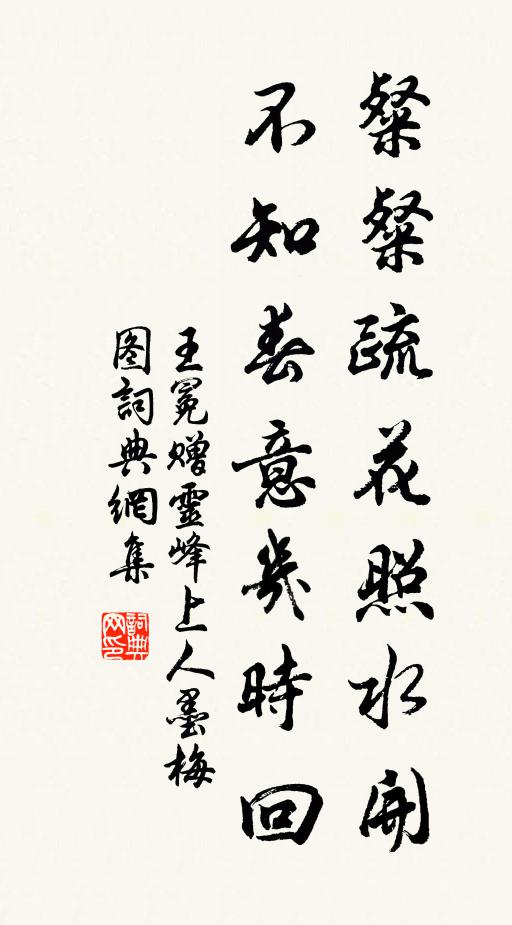 粲粲疏花照水開
不知春意幾時回
王冕贈靈峰上人墨梅
图詞典網集
詞典
网印